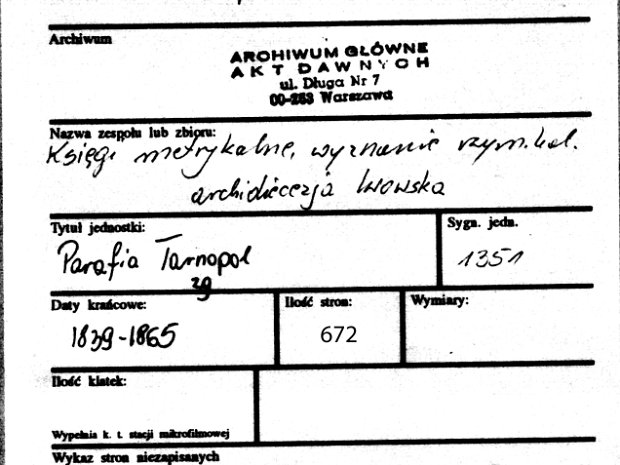 Archiwum
ARCHIWUM GŁÓWNE
AKT DAWNYCH
ul. Długa Nr 7
00-263 Warszawa
Nazwa zespołu lub zbioru:
Księgi metrykalne, wyznanie rzym. kat.
archidiecezja lwowska
Tytuł jednostki:
Sygn. jedn.
Parafia Tarnopol
1351
zg
Daty krańcowe:
Ilość stron:
Wymiary:
1839-1865
672
Ilość klatek:
Wypełnia k. t. stacji mikrofilmowej
Wykaz stron niezapisanych